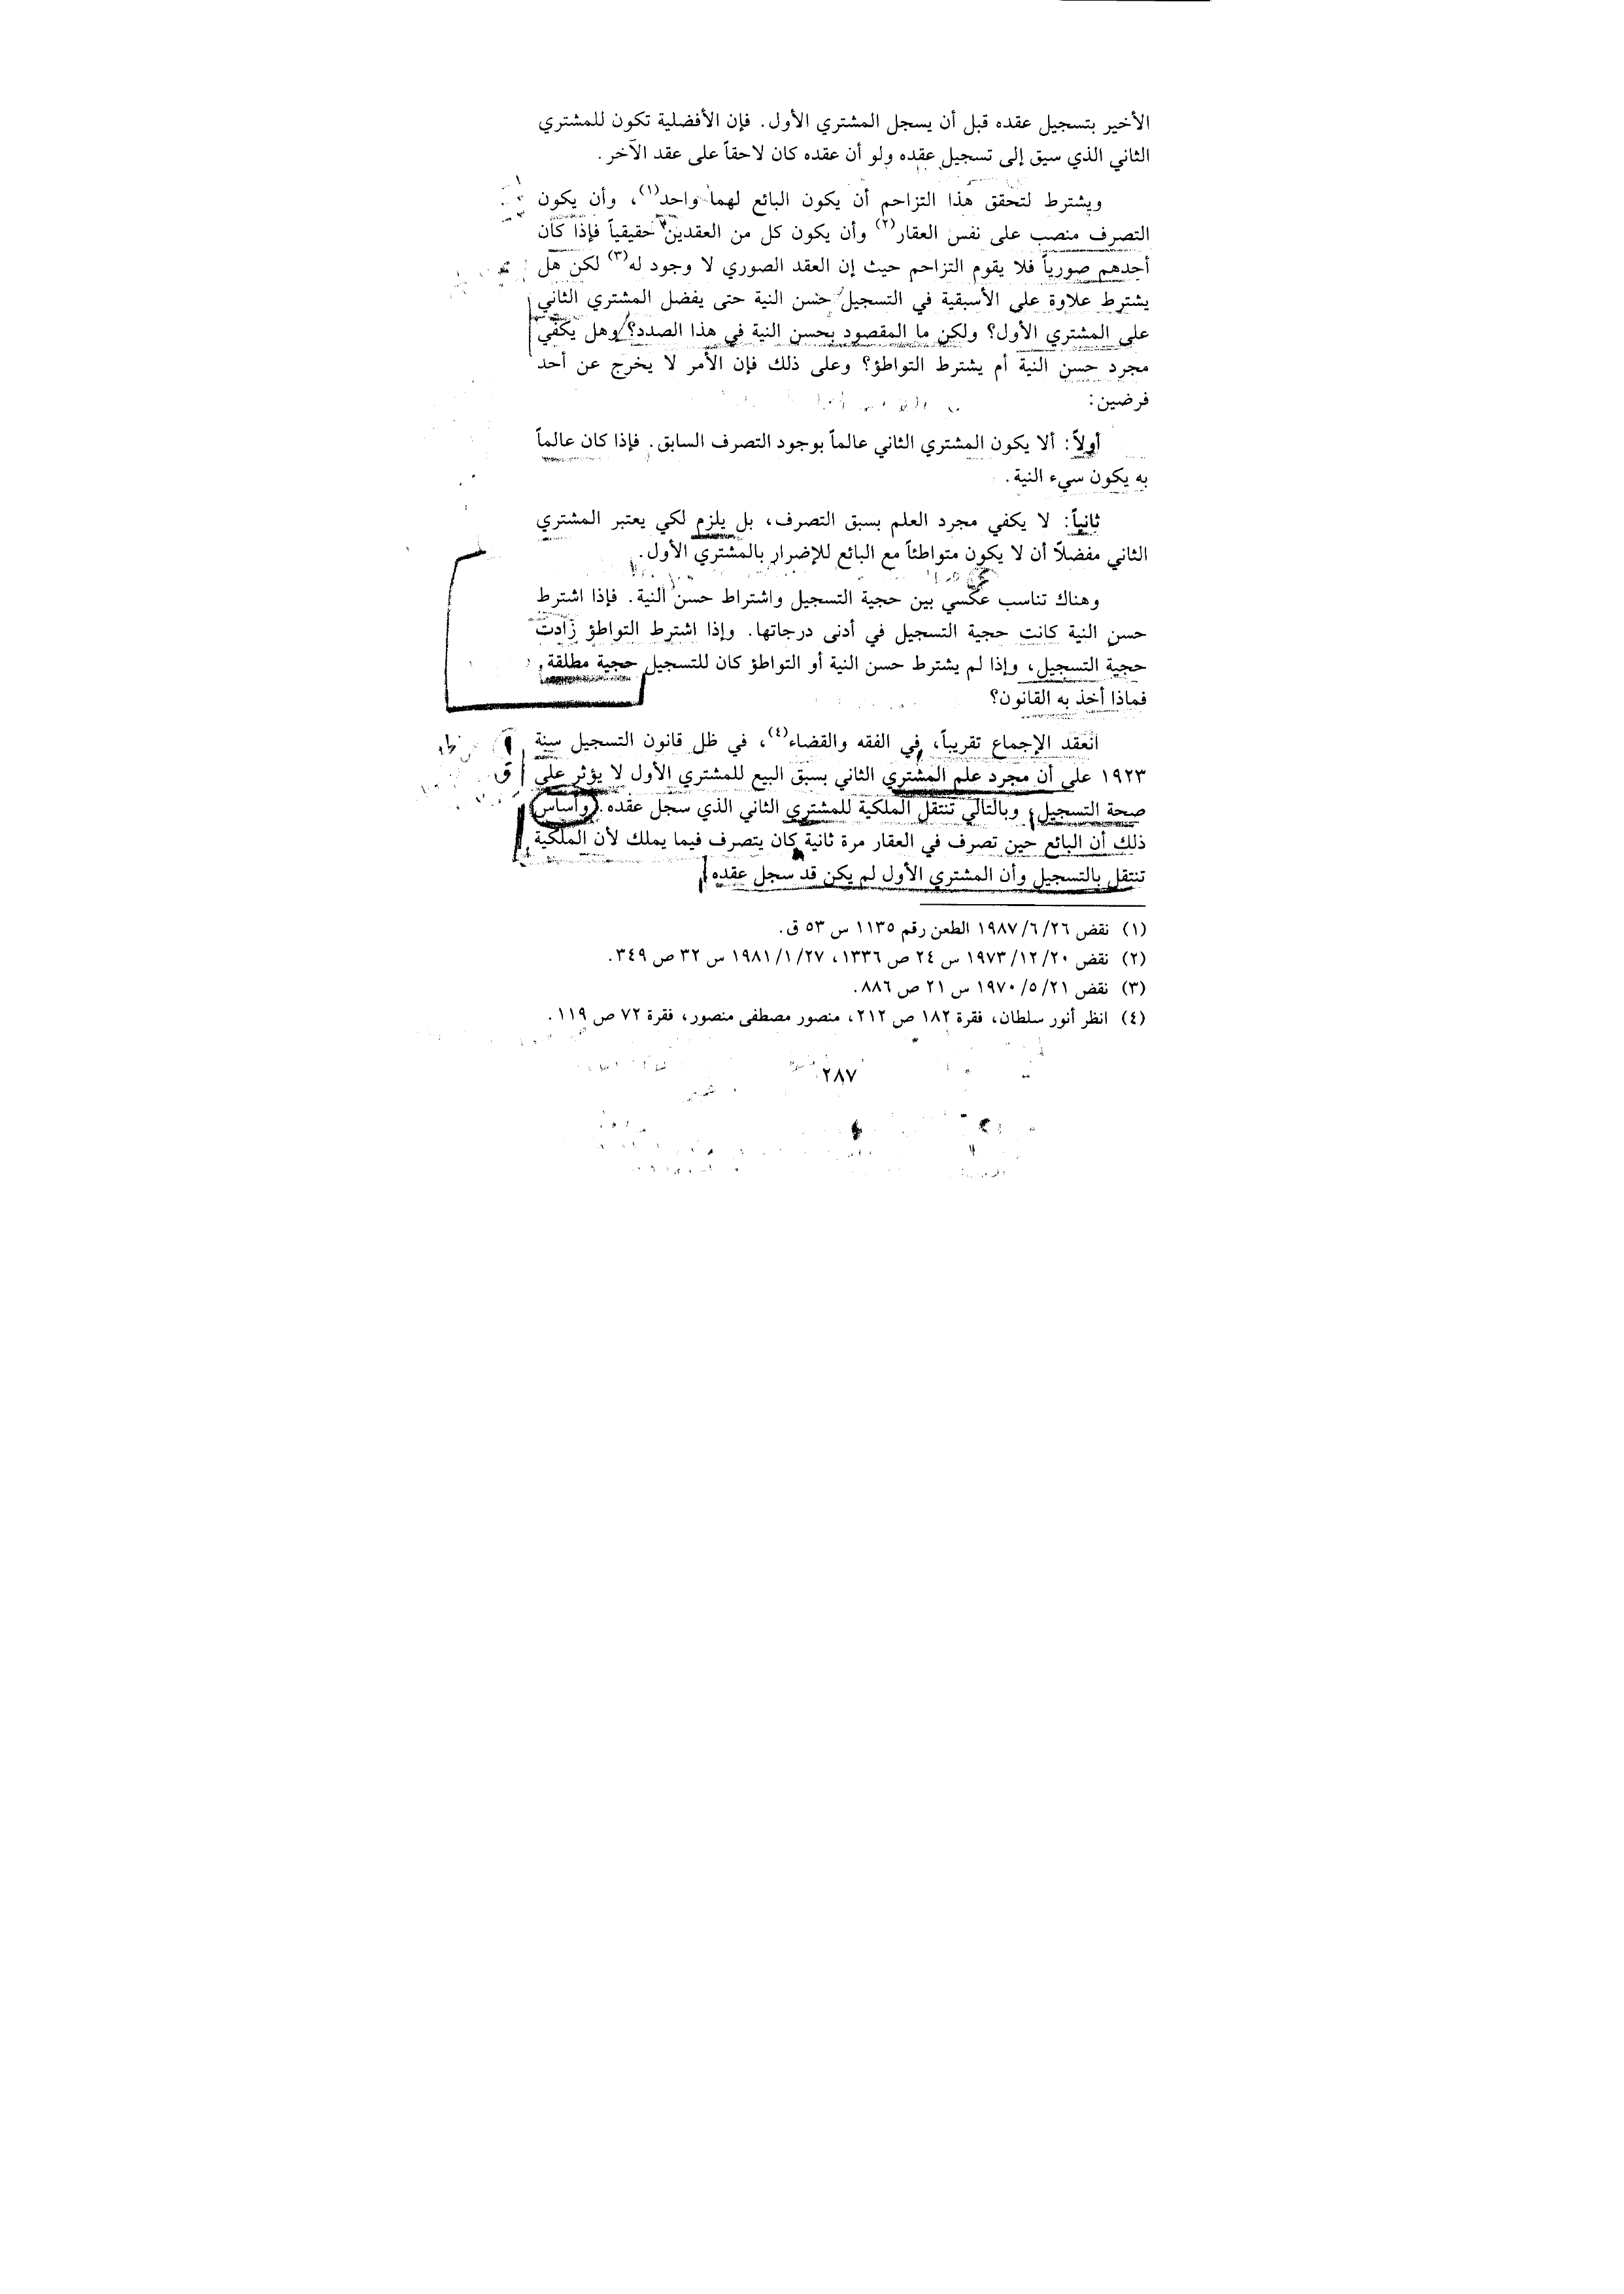 الأخير بتسجيل عقده قبل أن يسجل المشتري الأول. فإن الأفضلية تكون للمشتري
الثاني الذي سيق إلى تسجيل عقده ولو أن عقده كان لاحقاً على عقد الآخر.
ويشترط لتحقق هذا التزاحم أن يكون البائع لهما واحد(١)، وأن يكون
التصرف منصب على نفس العقار(٢) وأن يكون كل من العقدين حقيقياً فإذا كان
أحدهم صورياً فلا يقوم التزاحم حيث إن العقد الصوري لا وجود له(٣) لكن هل
يشترط علاوة على الأسبقية في التسجيل حسن النية حتى يفضل المشتري الثاني
على المشتري الأول؟ ولكن ما المقصود بحسن النية في هذا الصدد؟ وهل يكفي
مجرد حسن النية أم يشترط التواطؤ؟ وعلى ذلك فإن الأمر لا يخرج عن أحد
فرضين:
أولاً: ألا يكون المشتري الثاني عالماً بوجود التصرف السابق. فإذا كان عالماً
به يكون سيء النية.
ثانياً: لا يكفي مجرد العلم بسبق التصرف، بل يلزم لكي يعتبر المشتري
الثاني مفضلاً أن لا يكون متواطئاً مع البائع للإضرار بالمشتري الأول.
وهناك تناسب عكسي بين حجية التسجيل واشتراط حسن النية. فإذا اشترط
حسن النية كانت حجية التسجيل في أدنى درجاتها. وإذا اشترط التواطؤ زادت
حجية التسجيل، وإذا لم يشترط حسن النية أو التواطؤ كان للتسجيل حجية مطلقة
فماذا أخذ به القانون؟
انعقد الإجماع تقريباً، في الفقه والقضاء(٤)، في ظل قانون التسجيل سنة
١٩٢٣ على أن مجرد علم المشتري الثاني بسبق البيع للمشتري الأول لا يؤثر على
صحة التسجيل، وبالتالي تنتقل الملكية للمشتري الثاني الذي سجل عقده. وأساس
ذلك أن البائع حين تصرف في العقار مرة ثانية كان يتصرف فيما يملك لأن الملكية
تنتقل بالتسجيل وأن المشتري الأول لم يكن قد سجل عقده
(١) نقض ١٩٨٧/٦/٢٦ الطعن رقم ١١٣٥ س ٥٣ ق.
(٢) نقض ١٩٧٣/١٢/٢٠ س ٢٤ ص ١٣٣٦، ١٩٨١/١/٢٧ س ٣٢ ص ٣٤٩.
(٣) نقض ١٩٧٠/٥/٢١ س ٢١ ص ٨٨٦.
(٤) انظر أنور سلطان، فقرة ١٨٢ ص ٢١٢، منصور مصطفى منصور، فقرة ٧٢ ص ١١٩.
٢٨٧